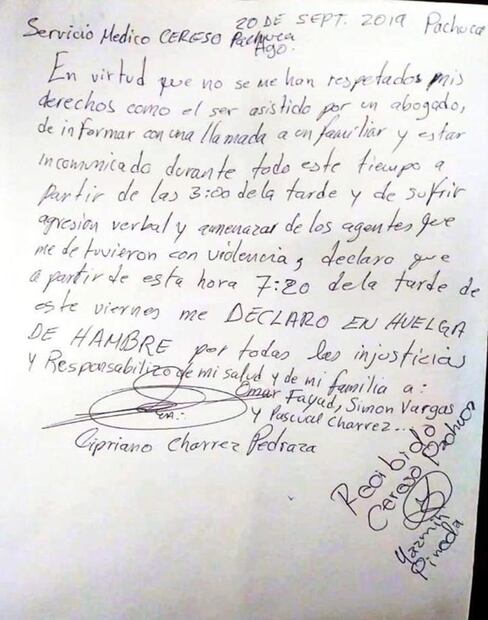 20 DE SEPT. 2019 Pachuca
Servicio Medico CERESO Pachuca
Hgo.
En virtud que no se me han respetados mis
derechos como el ser asistido por un abogado,
de informar con una llamada a un familiar y estar
incomunicado durante todo este tiempo a
partir de las 3:00 de la tarde y de sufrir
agresión verbal y amenazas de los agentes que
me detuvieron con violencia, declaro que
a partir de esta hora 7:20 de la tarde de
este viernes me DECLARO EN HUELGA
DE HAMBRE por todas las injusticias
y Responsabilizo de mi salud y de mi familia a:
Omar Fayad, Simon Vargas
y Pascual Charrez...
Cipriano Charrez Pedraza
Recibido
Cereso Pachuca
Yazmin
Pineda